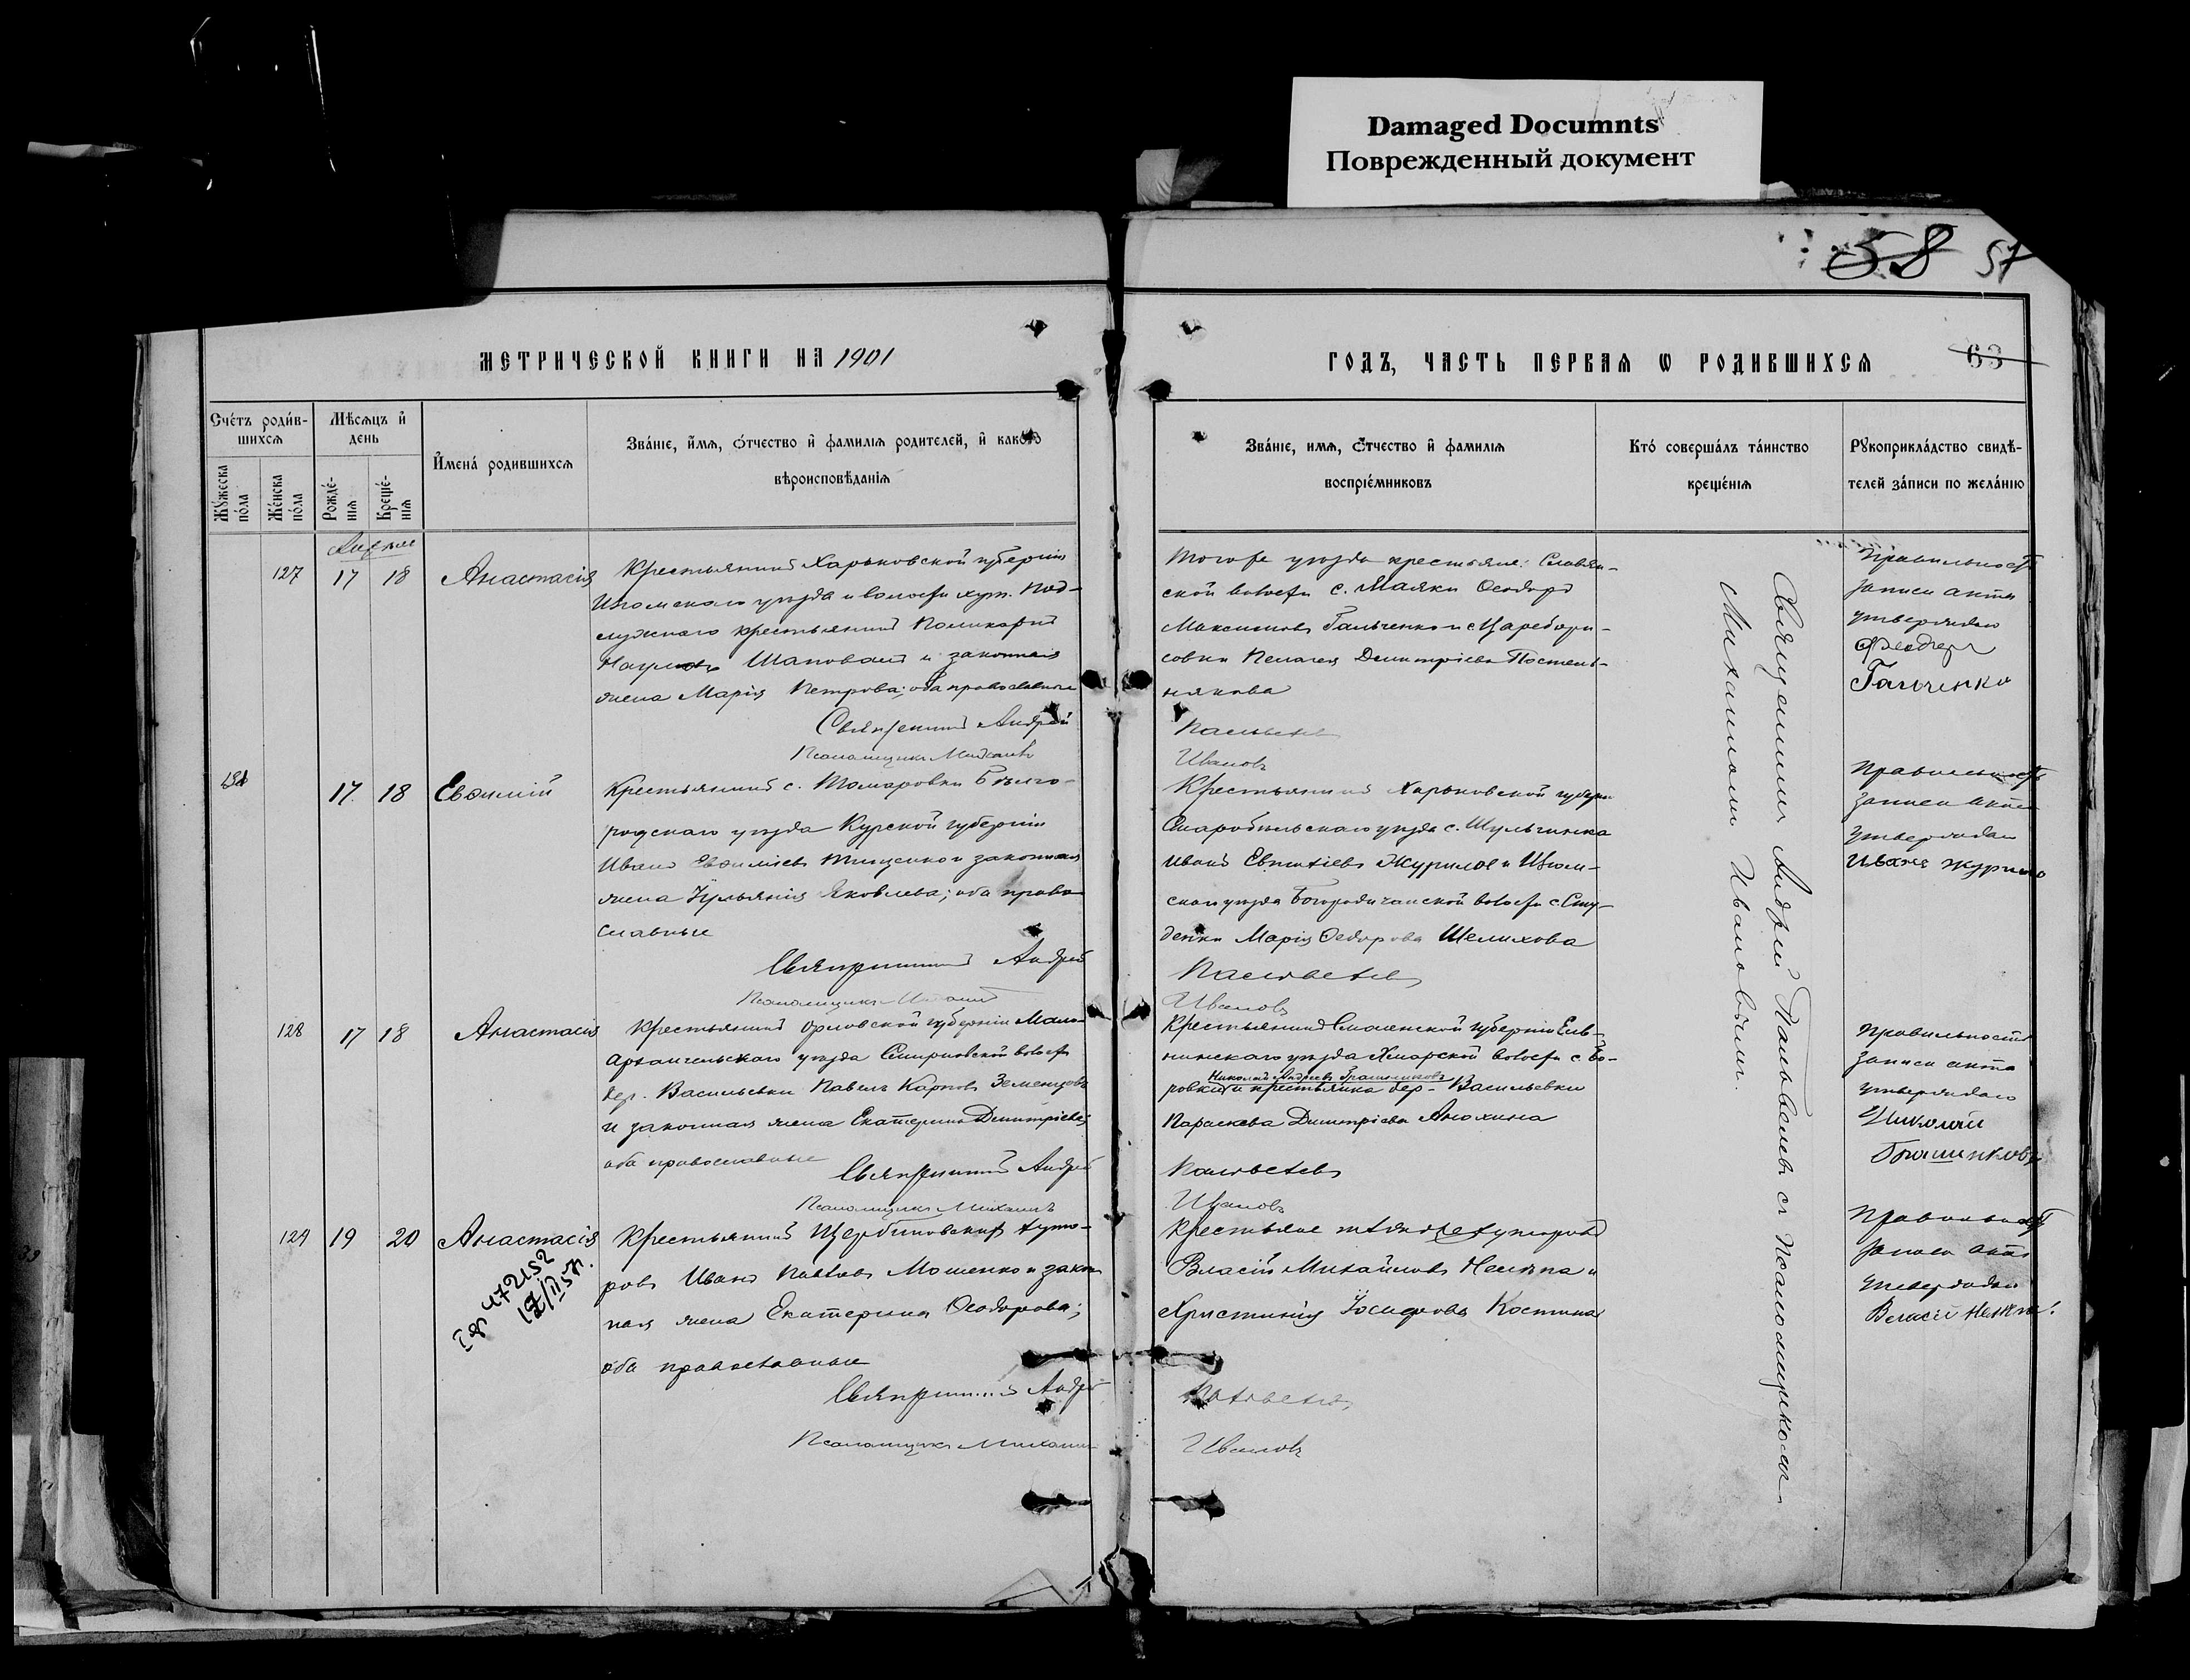 Damaged Documnts
Поврежденный документ
58 57
МЕТРИЧЕСКОЙ КНИГИ НА 1901
ГОДЪ, ЧАСТЬ ПЕРВАЯ Ѡ РОДИВШИХСЯ
63
Счетъ родив-
шихся
Мѣсяцъ и
день
Мужеска
пола
Женска
пола
Рожде-
нія
Креще-
нія
Имена родившихся
Званіе, имя, отчество и фамилія родителей, и какого
вѣроисповѣданія
Званіе, имя, отчество и фамилія
воспріемниковъ
Кто совершалъ таинство
крещенія
Рукоприкладство свидѣ-
телей записи по желанію
127 17 18 Анастасія
Крестьянинъ Харьковской губерніи
Изюмскаго уѣзда и волости хут. Под-
лужнаго крестьянинъ Поликарпъ
Наумовъ Шаповалъ и законная
жена Марія Петрова; оба православные
Священникъ Андрей
Псаломщикъ Михаилъ
того же уѣзда крестьяне: Славян-
ской волости с. Маяки Ѳеодоръ
Максимовъ Гальченко и Царебори-
совки Пелагея Димитріева Постель-
някова
Ивановъ
Правильность
записи акта
утверждаю
Феодоръ
Гальченко
17 18 Евѳимій
Крестьянинъ с. Томаровки Бѣлго-
родскаго уѣзда Курской губерніи
Иванъ Евѳиміевъ Тищенко и законная
жена Іуліанія Яковлева; оба право-
славные
Священникъ Андрей
Псаломщикъ Михаилъ
Крестьянинъ Харьковской губерн.
Старобѣльскаго уѣзда с. Шульгинка
Иванъ Журило и Изюм-
скаго уѣзда Богородичанской волости с. Сту-
денки Марія Ѳеодорова Шелихова
Ивановъ
Правильность
записи акта
утверждаю
Иванъ Журило
128 17 18 Анастасія
Крестьянинъ Орловской губерніи Мало-
архангельскаго уѣзда волости
дер. Васильевки Павелъ Карповъ Земенцовъ
и законная жена Екатерина Димитріева;
оба православные
Священникъ Андрей
Псаломщикъ Михаилъ
Крестьянинъ Смоленской губерніи Ель-
нинскаго уѣзда Хмарской волости с. Бо-
Николай Андреевъ
ровки и крестьянка дер. Васильевки
Параскева Димитріева Анохина
Ивановъ
Правильность
записи акта
утверждаю
Николай
129 19 20 Анастасія
Крестьянинъ Щербиновскихъ хуто-
ровъ Иванъ Павловъ Мошенко и закон-
ная жена Екатерина Ѳеодорова;
оба православные
Священникъ Андрей
Псаломщикъ Михаилъ
Крестьяне тѣхъ же хуторовъ
Власій Михайловъ и
Христинія Іосифова Костина
Ивановъ
Правильность
записи акта
утверждаю
Власій
Священникъ Андрей съ псаломщикомъ
Михаиломъ Ивановымъ.